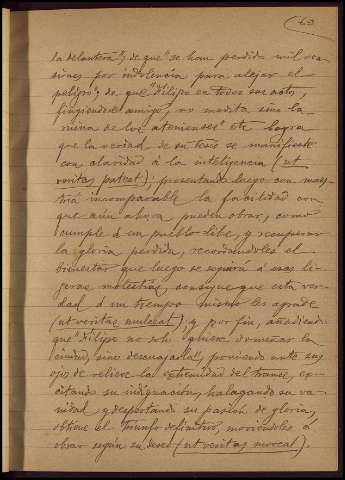 63
la delantera", de que "se han perdido mil oca-
siones por indolencia para alejar el
peligro", de que "Filipo en todos sus actos,
fingiendose amigo, no medita sino la
ruina de los atenienses" etc. logra
que la verdad de su tesis se manifieste
con claridad á la inteligencia (ut
veritas pateat); presentando luego con maes-
tría incomparable la facilidad con
que aun ahora pueden obrar, como
cumple á un pueblo libre, y recuperar
la gloria perdida, recordándoles el
bienestar que luego se seguirá á esas li-
geras molestias, consigue que esta ver-
dad á un tiempo mismo les agrade
(ut veritas mulceat), y por fin, añadiendo
que "Filipo no solo quiere domeñar la
ciudad, sino descuajarla", poniendo ante sus
ojos de relieve la extremidad del trance, ex-
citando su indignación, halagando su va-
nidad y despertando su pasión de gloria,
obtiene el triunfo definitivo, moviéndoles á
obrar según su deseo (ut veritas moveat).